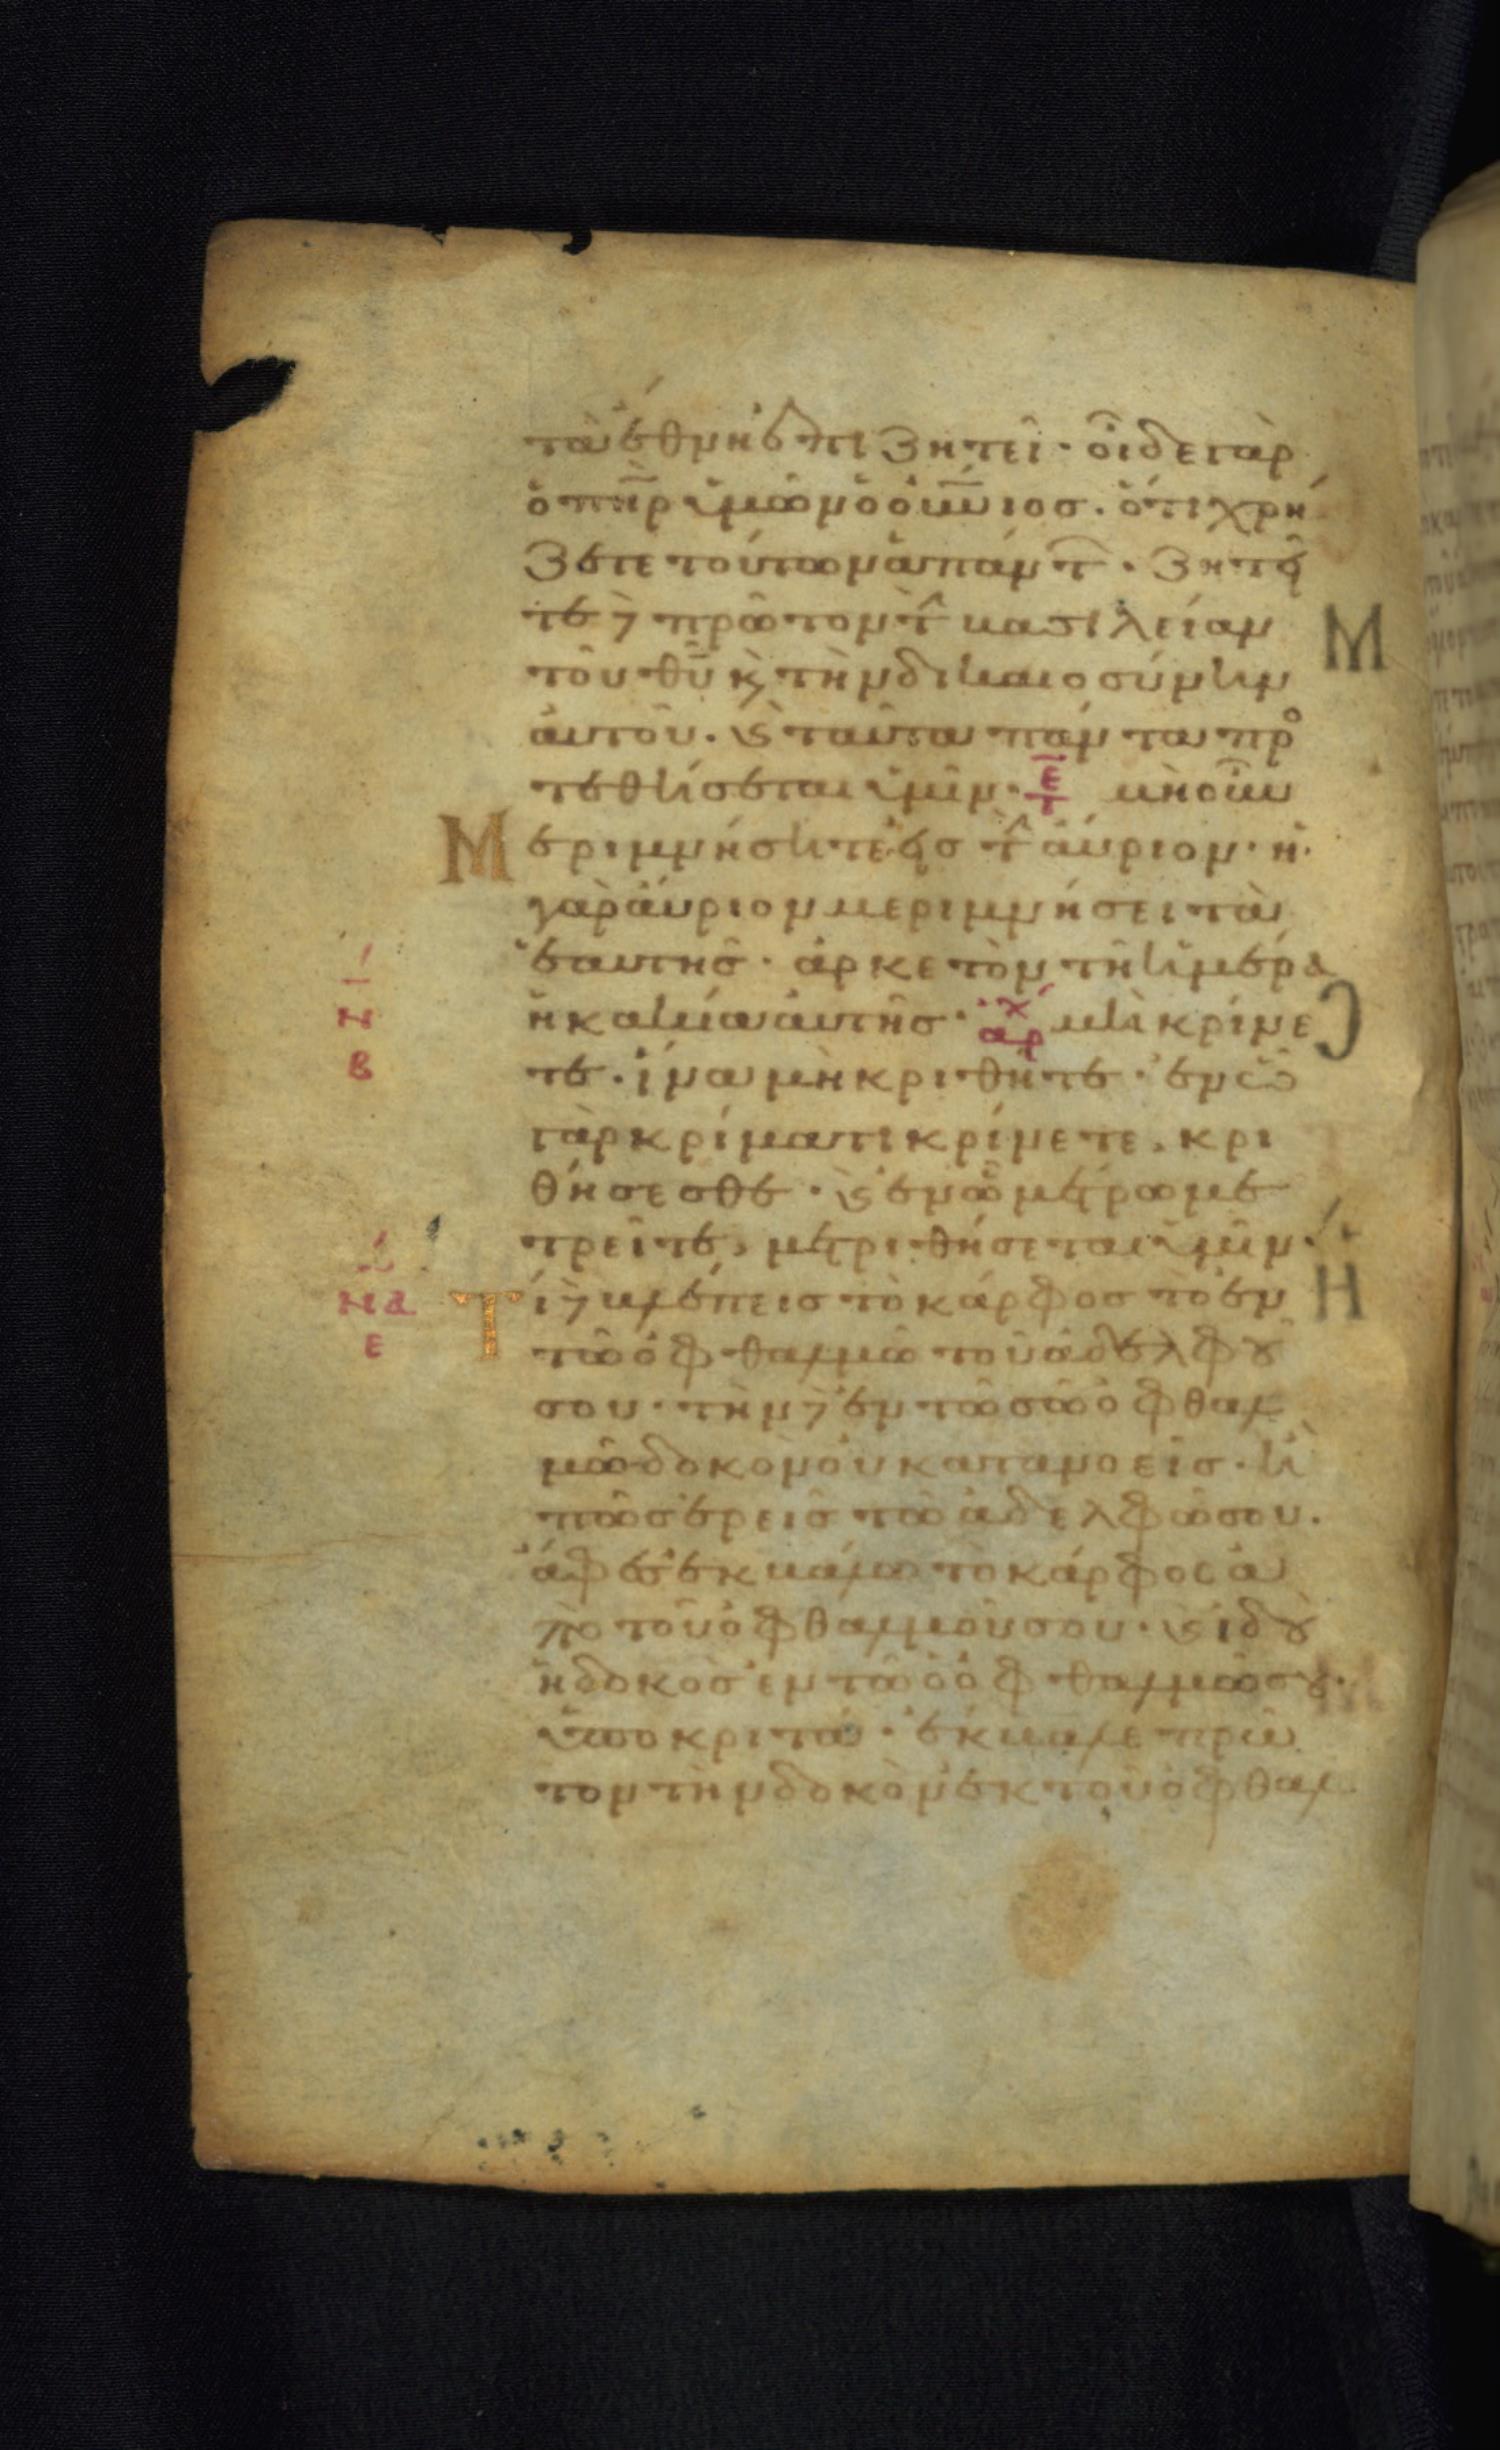 τὰ ἔθνη ἐπιζητεῖ· οἶδε γὰρ
ὁ π̅η̅ρ ὑμῶν ὁ ο̅υ̅νιος. ὅτι χρή
ζετε τούτων ἁπάντ(ων)· ζητεῖ
τε δὲ πρῶτον τ(ὴν) βασιλείαν
τοῦ θ̅υ̅ κ(αὶ) τὴν δικαιοσύνην
αὐτοῦ. κ(αὶ) ταῦτα πάντα προ
τεθήσεται ὑμῖν· ε̅ τ μὴ οὖν
Μεριμνήσητε εἰς τ(ὴν) αὔριον· ἡ
γὰρ αὔριον μεριμνήσει τὰ
ἑαυτῆς· ἀρκετὸν τῇ ἡμέρα
ἡ κακία αὐτῆς· ἀρχ μὴ κρίνε
τε. ἵνα μὴ κριθῆτε· ἐν ᾧ
γὰρ κρίματι κρίνετε. κρι
θήσεσθε· κ(αὶ) ἐν ᾧ μέτρω με
τρεῖτε, μετριθήσεται ὑμῖν·
Τί δὲ βλέπεις τὸ κάρφος τὸ ἐν
τῶ ὀφθαλμῶ τοῦ ἀδελφοῦ
σου· τὴν δὲ ἐν τῶ σῶ ὀφθαλ
μῶ δοκὸν οὐ κατανοεῖς· ἢ
πῶς ἐρεῖς τῶ ἀδελφῶ σου.
ἄφες ἐκβάλω τὸ κάρφος ἀ
πὸ τοῦ ὀφθαλμοῦ σου· κ(αὶ) ἰδοὺ
ἡ δοκὸς ἐν τῶ ὀφθαλμῶ σου·
ὑποκριτά· ἔκβαλε πρῶ
τον τὴν δοκὸν ἐκ τοῦ ὀφθαλ